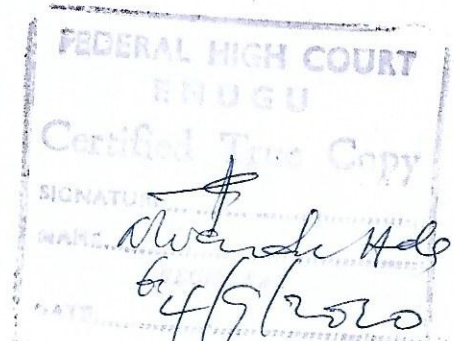 FEDERAL HIGH COURT
ENUGU
Certified True Copy
SIGNATURE
NAME
DATE
4/9/2020